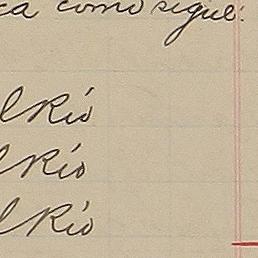 ca como sigue:
el Río
el Río
el Río